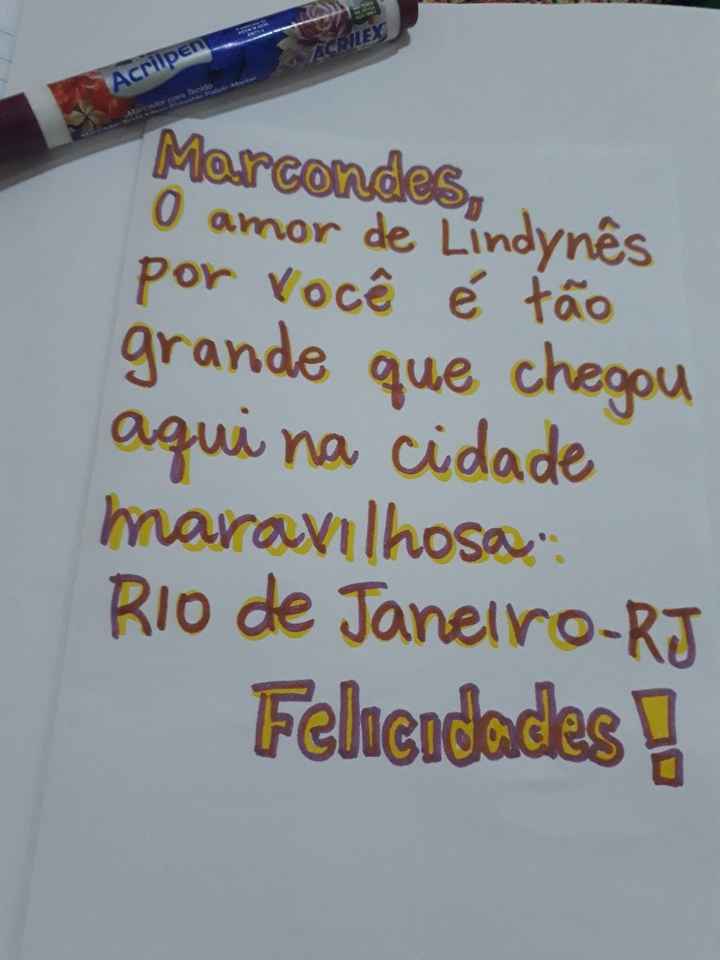 Acrilpen
ACRILEX
Marcador para Tecido
Marcondes,
O amor de Lindynês
por você é tão
grande que chegou
aqui na cidade
maravilhosa:
RIO de Janeiro-RJ
Felicidades!